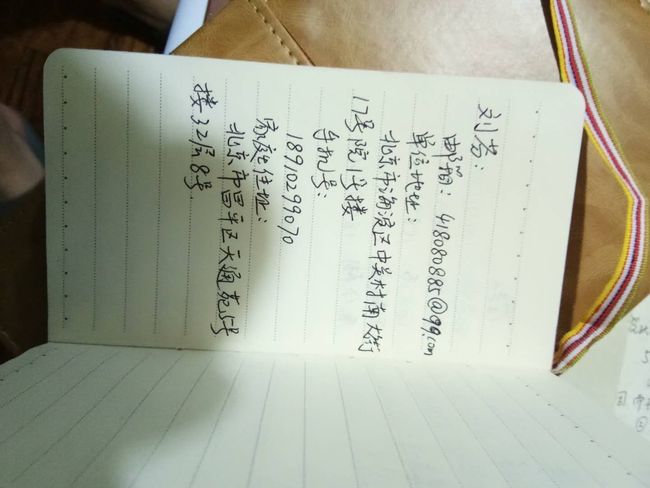 刘芳:
邮箱: 418080885@qq.com
单位地址:
北京市海淀区中关村南大街
17号院1号楼
手机号:
18910299070
家庭住址:
北京市昌平区天通苑5号
楼32层8号.